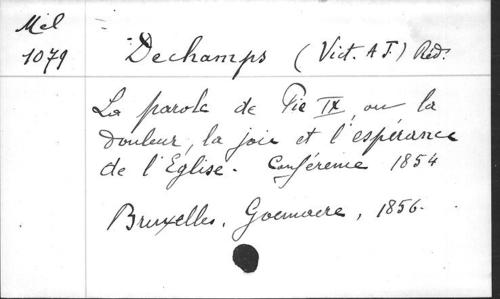 Mél
1079
Dechamps (Vict. A J.) Réd.
La parole de Pie IX, ou la
douleur, la joie et l'espérance
de l'Eglise. Conférence 1854
Bruxelles, Goemaere, 1856.